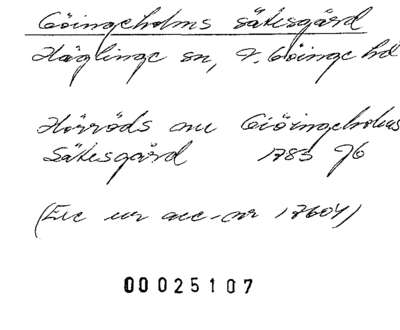 Göingeholms sätesgård
Häglinge sn, V. Göinge hd
Hörröds ene Giöingeholms
Sätesgård 1783 76
(Exc ur acc-nr 17604)
00025107